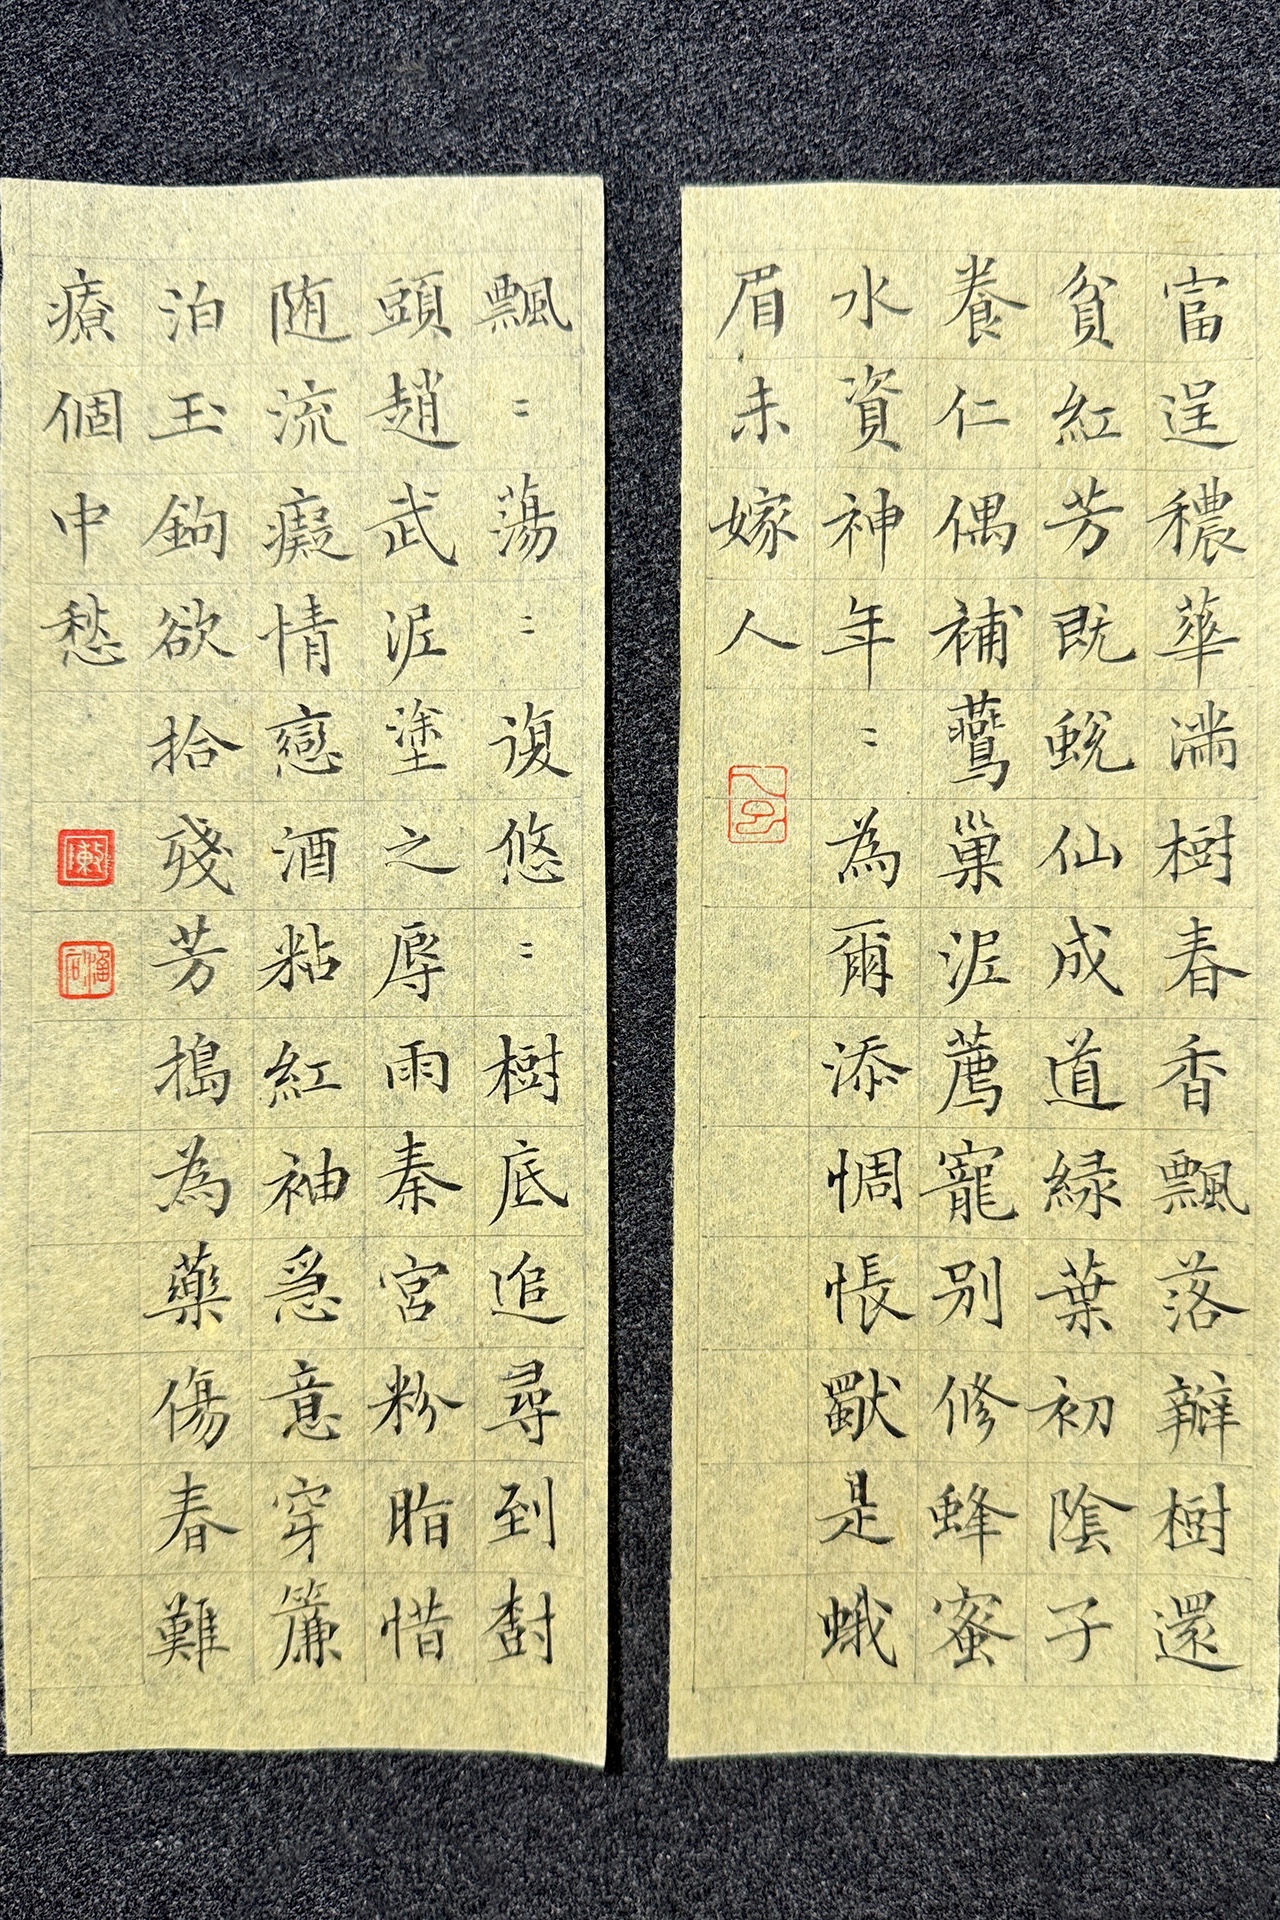 富逞穠華满樹春香飄落瓣樹還
貧紅芳既蜕仙成道緑葉初陰子
養仁偶補鷰巢泥薦寵別修蜂蜜
水資神年=為爾添惆悵獨是蛾
眉未嫁人
飄=蕩=復悠=樹底追尋到樹
頭趙武泥塗之辱雨秦宮粉脂惜
随流癡情戀酒粘紅袖急意穿簾
泊玉鉤欲拾殘芳搗為藥傷春難
療個中愁